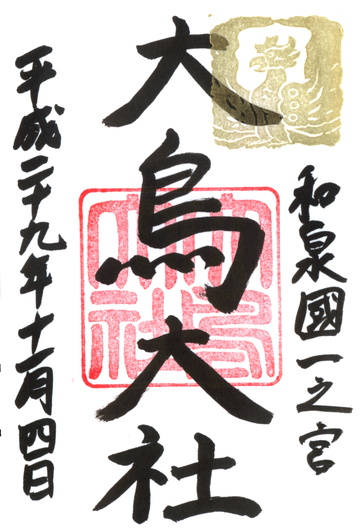 和泉國一之宮
大鳥大社
大鳥
大社
平成二十九年十一月四日